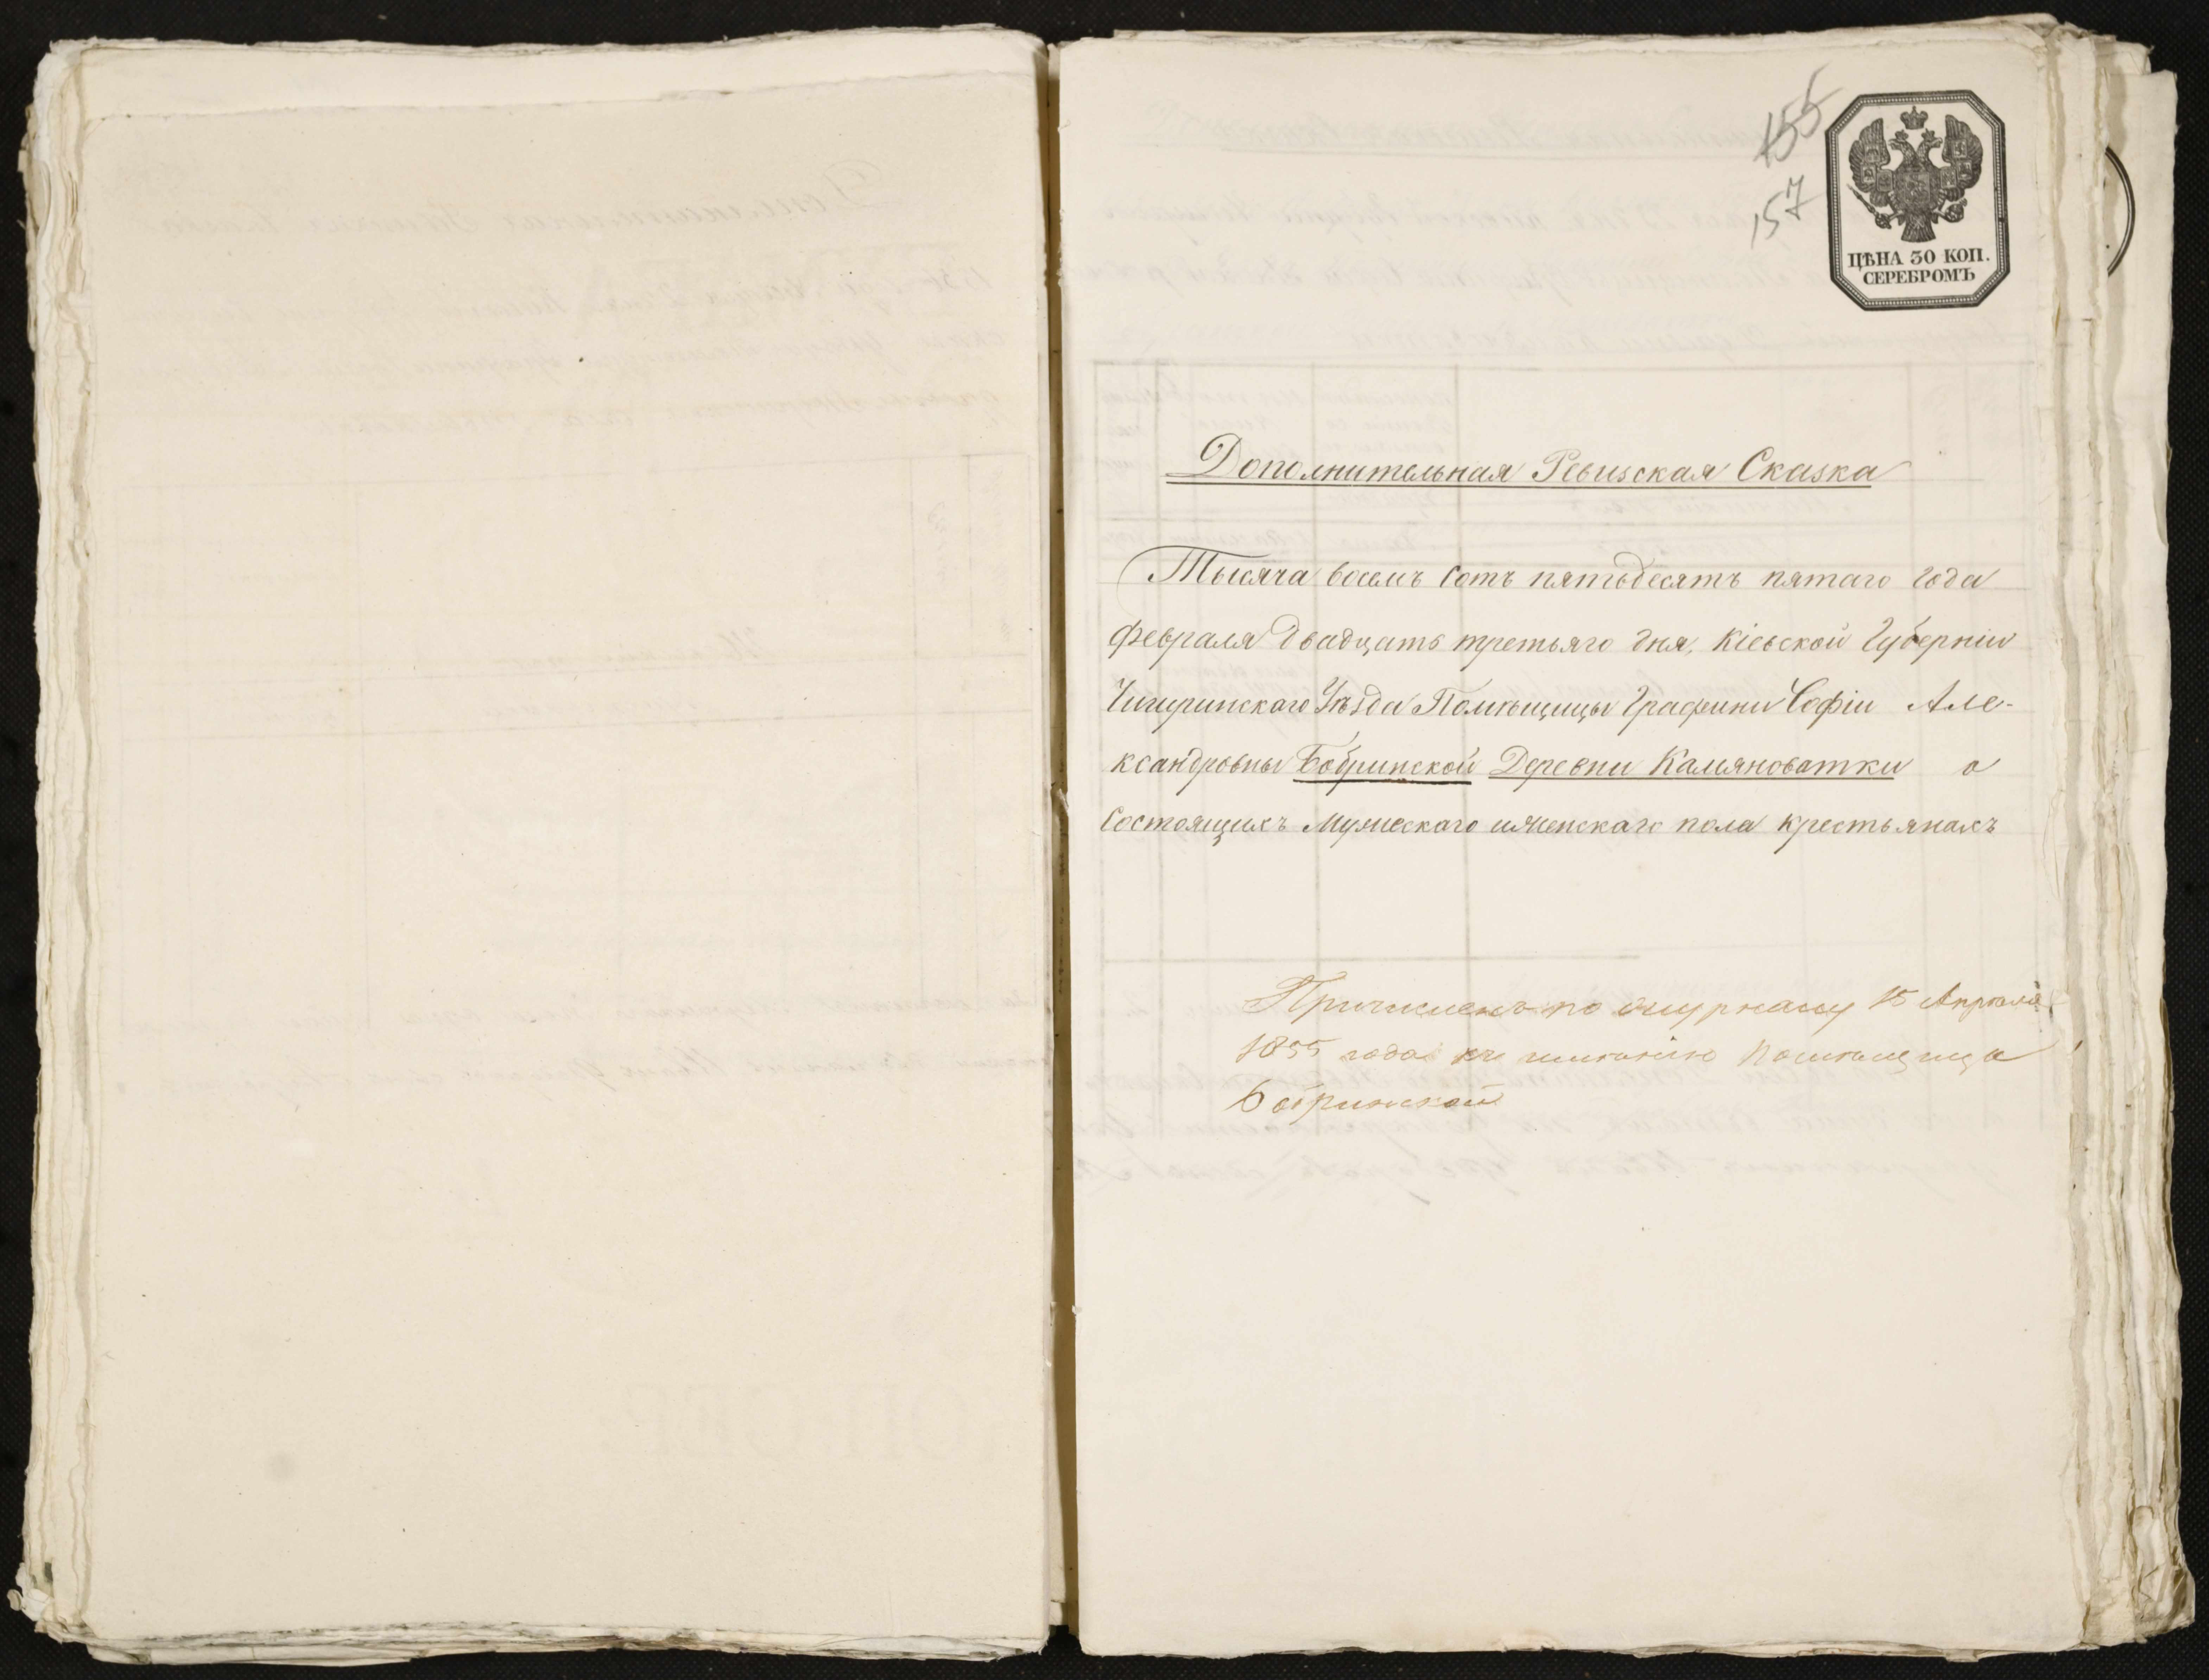 155
157
ЦѢНА 30 КОП.
СЕРЕБРОМЪ
Дополнительная Ревизская Сказка
Тысяча восемь сотъ пятьдесятъ пятаго года
февраля двадцать третьяго дня, Кіевской Губерніи
Чигиринскаго Уѣзда Помѣщицы Графини Софіи Але-
ксандровны Бобринской Деревни Камяноватки о
состоящихъ мужескаго и женскаго пола крестьянахъ
Причисленъ по журналу 15 Апрѣля
1855 года къ имѣнію помѣщицы
Бобринской